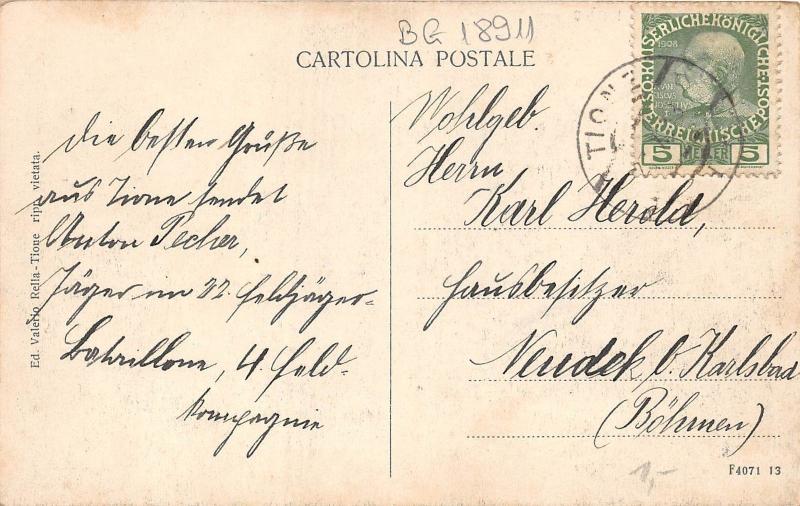 BG 18911
CARTOLINA POSTALE
Die besten Grüße
aus Tione sendet
Anton Pecher,
Jäger im 22. Feldjäger-
Bataillone, 4. Feld-
kompagnie
Wohlgeb.
Herrn
Karl Herold,
Hausbesitzer
Neudek b. Karlsbad
(Böhmen)
1,-
F4071 13
Ed. Valerio Rella-Tione ripr. vietata.
KAISERLICHE KÖNIGLICHE
ÖSTERREICHISCHE POST
1908
5 HELLER 5
TIONE